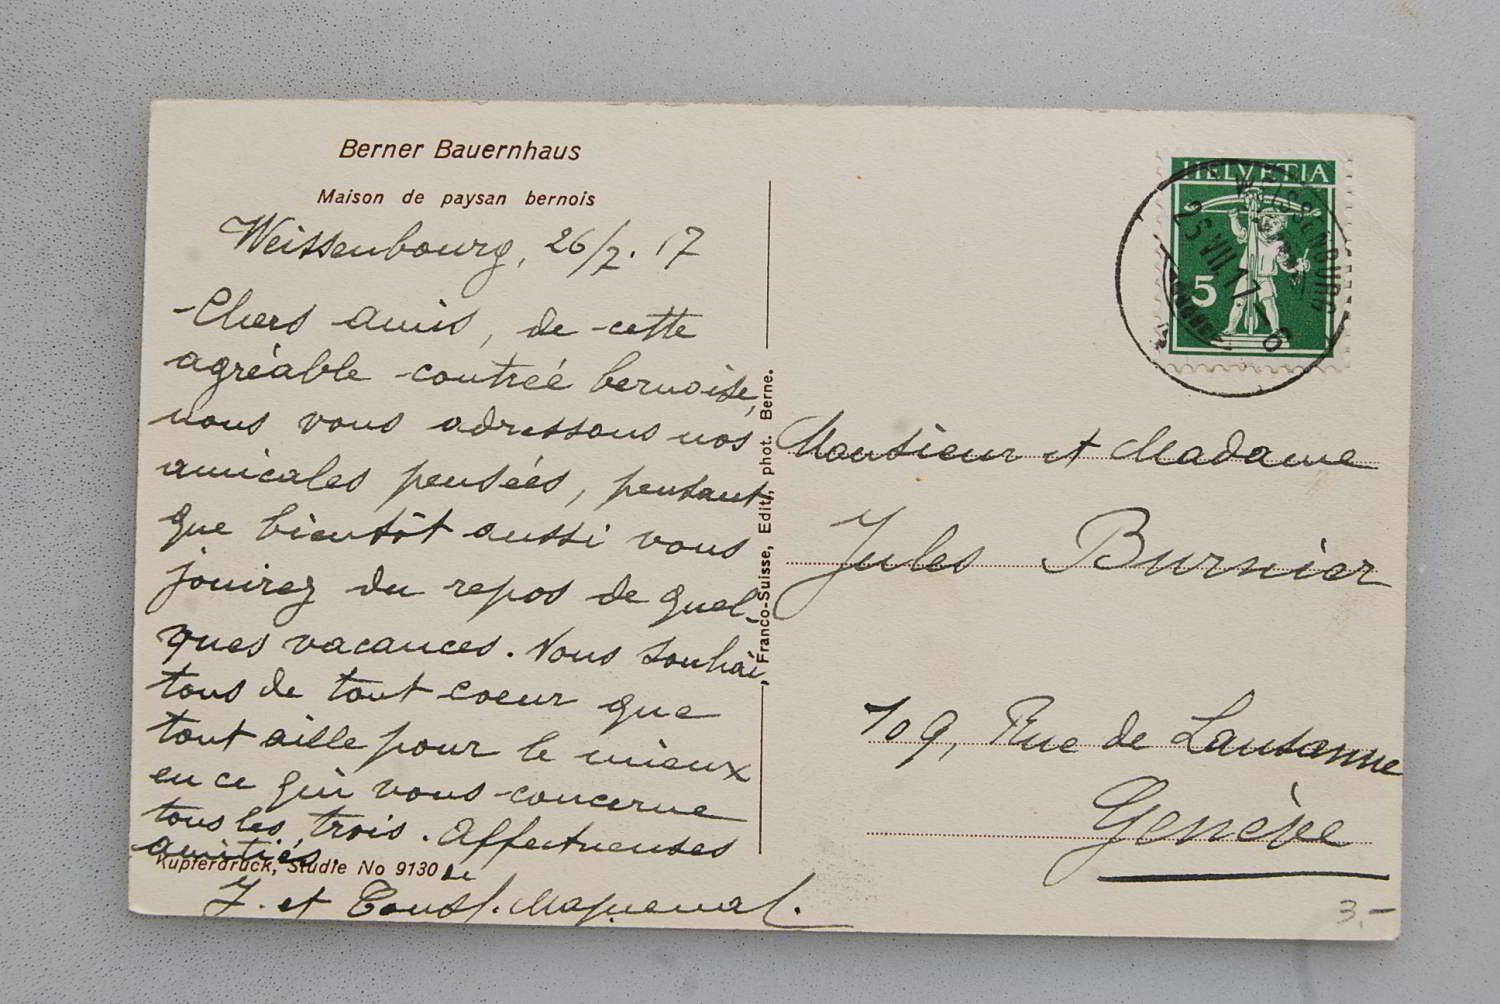 Berner Bauernhaus
Maison de paysan bernois
Weissenbourg, 26/7. 17
Chers amis, de cette
agréable contreé bernoise,
nous vous adressons nos
amicales pensées, pensant
que bientôt aussi vous
jouirez du repos de quel-
ques vacances. Nous souhai-
tons de tout coeur que
tout aille pour le mieux
en ce qui vous concerne
tous les trois. Affectueuses
amitiés.
Kupferdruck, Studie No 9130
de
J. et
Franco-Suisse, Edit., phot. Berne.
HELVETIA
5
WEISSENBURG
26.VII.17-6
Monsieur et Madame
Jules Burnier
109, Rue de Lausanne
Genève
3.-